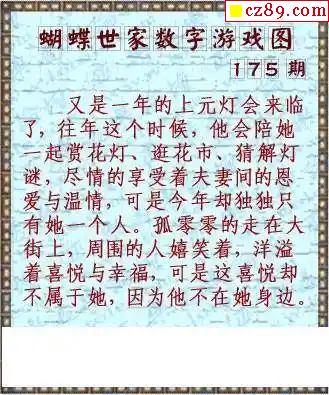 cz89.com
蝴蝶世家数字游戏图
175期
又是一年的上元灯会来临
了，往年这个时候，他会陪她
一起赏花灯、逛花市、猜解灯
谜，尽情的享受着夫妻间的恩
爱与温情，可是今年却独独只
有她一个人。孤零零的走在大
街上，周围的人嬉笑着，洋溢
着喜悦与幸福，可是这喜悦却
不属于她，因为他不在她身边。